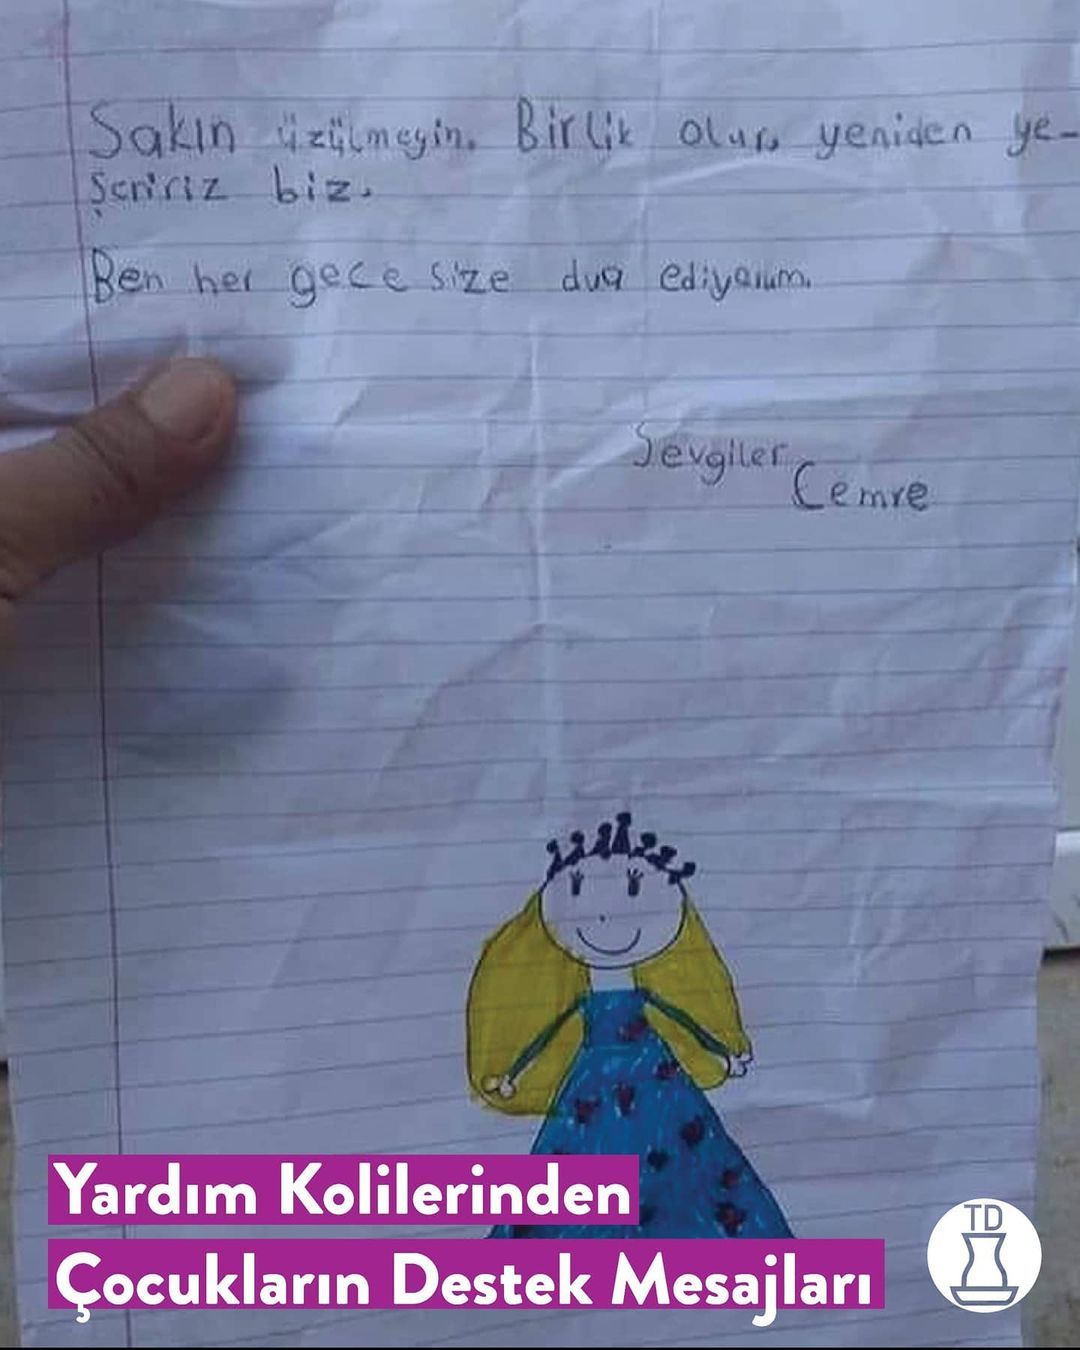 Sakın üzülmeyin. Birlik olur, yeniden ye-
şeririz biz.
Ben her gece size dua ediyorum.
Sevgiler
Cemre
Yardım Kolilerinden
Çocukların Destek Mesajları
TD